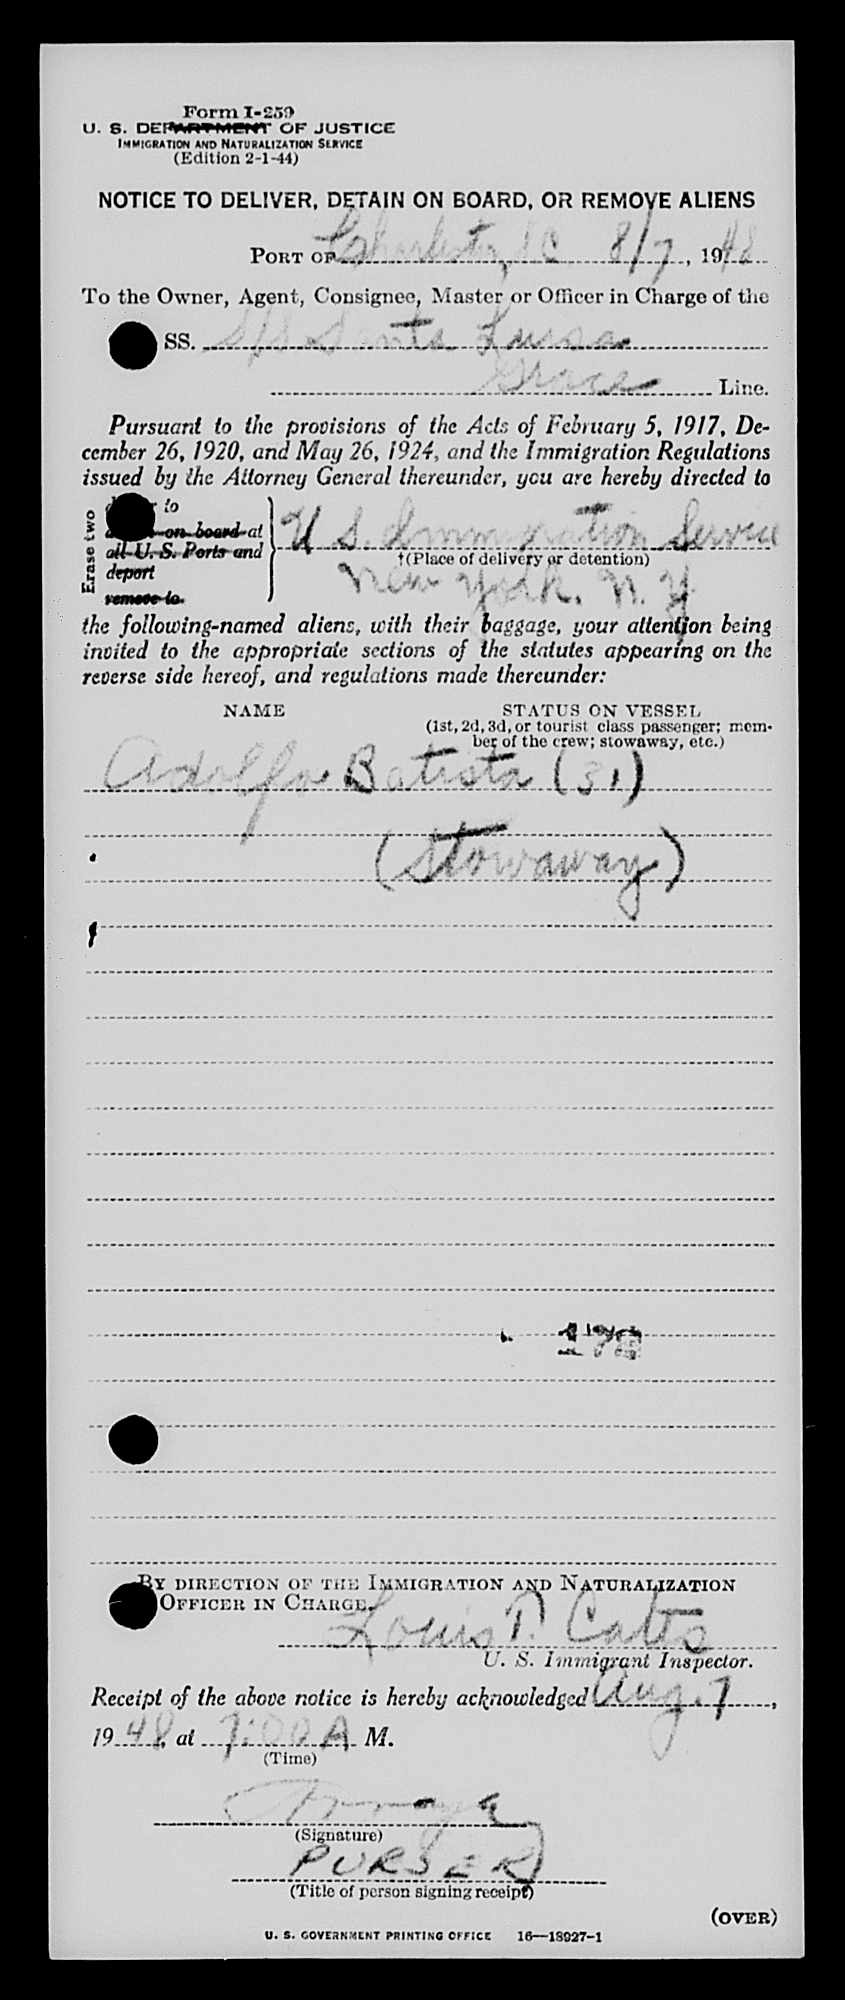 Form I-259
U. S. DEPARTMENT OF JUSTICE
IMMIGRATION AND NATURALIZATION SERVICE
(Edition 2-1-44)
NOTICE TO DELIVER, DETAIN ON BOARD, OR REMOVE ALIENS
PORT OF Charleston, SC 8/7, 1948
To the Owner, Agent, Consignee, Master or Officer in Charge of the
SS. S/S Santa Luisa
Grace Line.
Pursuant to the provisions of the Acts of February 5, 1917, De-
cember 26, 1920, and May 26, 1924, and the Immigration Regulations
issued by the Attorney General thereunder, you are hereby directed to
Erase two
to
on board at
all U. S. Ports and
deport
remove to
U S. Immigration Service
†(Place of delivery or detention)
New York. N. Y
the following-named aliens, with their baggage, your attention being
invited to the appropriate sections of the statutes appearing on the
reverse side hereof, and regulations made thereunder:
NAME STATUS ON VESSEL
(1st, 2d, 3d, or tourist class passenger; mem-
ber of the crew; stowaway, etc.)
Adolfo Batista (31)
(Stowaway)
BY DIRECTION OF THE IMMIGRATION AND NATURALIZATION
OFFICER IN CHARGE.
Louis P. Catts
U. S. Immigrant Inspector.
Receipt of the above notice is hereby acknowledged Aug. 7,
1948, at 7:00 A M.
(Time)
(Signature)
PURSER
(Title of person signing receipt)
(OVER)
U. S. GOVERNMENT PRINTING OFFICE 16—18927-1